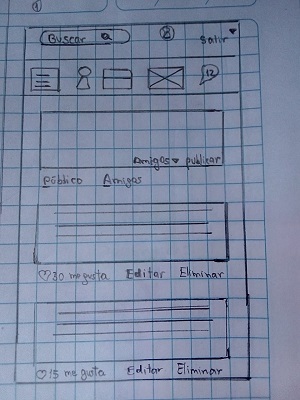 Buscar
Salir
12
Amigos publicar
Público Amigos
30 me gusta Editar Eliminar
15 me gusta Editar Eliminar